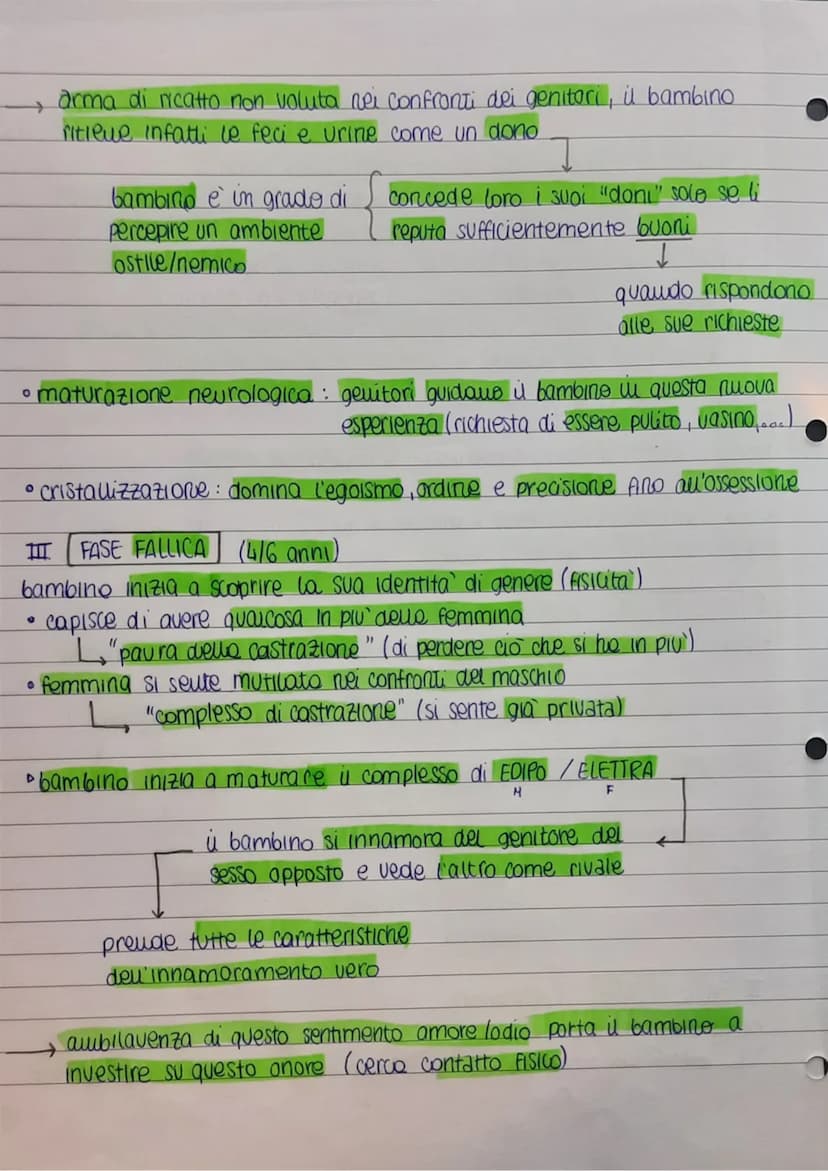 → arma di ricatto non voluta nei confronti dei genitori, il bambino
ritiene infatti le feci e urine come un dono
bambino è in grado di
percepire un ambiente
ostile/nemico
concede loro i suoi "doni" solo se li
reputa sufficientemente buoni
quando rispondono
alle sue richieste
• maturazione neurologica: genitori guidano il bambino in questa nuova
esperienza (richiesta di essere pulito, vasino,...)
• cristallizzazione: domina l'egoismo, ordine e precisione fino all'ossessione
III FASE FALLICA (4/6 anni)
bambino inizia a scoprire la sua identità di genere (fisicità)
• capisce di avere qualcosa in più della femmina
"paura della castrazione" (di perdere ciò che si ha in più)
• femmina si sente mutilata nei confronti del maschio
"complesso di castrazione" (si sente già privata)
▹ bambino inizia a maturare il complesso di EDIPO / ELETTRA
M F
il bambino si innamora del genitore del
sesso opposto e vede l'altro come rivale
prende tutte le caratteristiche
dell'innamoramento vero
→ ambilavenza di questo sentimento amore/odio porta il bambino a
investire su questo amore (cerca contatto fisico)